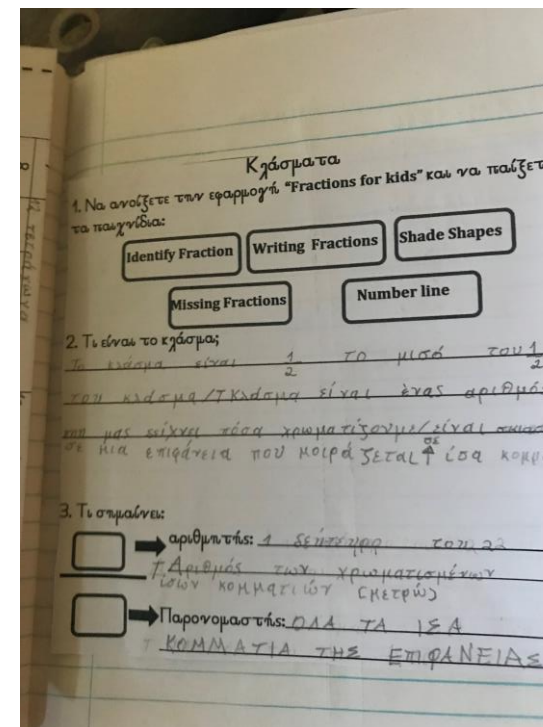 Κλάσματα
1. Να ανοίξετε την εφαρμογή "Fractions for kids" και να παίξετ
τα παιχνίδια:
Identify Fraction
Writing Fractions
Shade Shapes
Missing Fractions
Number line
2. Τι είναι το κλάσμα;
Το κλάσμα είναι 1/2 το μισό του 1/2
του κλάσμα/Τ Κλάσμα είναι ένας αριθμό
που μας δείχνει πόσα χρωματίζουμε/είναι
σε μια επιφάνεια που μοιράζεται σε ίσα κομμ
3. Τι σημαίνει:
αριθμητής: 1
Τ. Αριθμός των χρωματισμένων
ίσων κομματιών (μετρώ)
Παρονομαστής: ΟΛΑ ΤΑ ΙΣΑ
ΚΟΜΜΑΤΙΑ ΤΗΣ ΕΠΙΦΑΝΕΙΑΣ